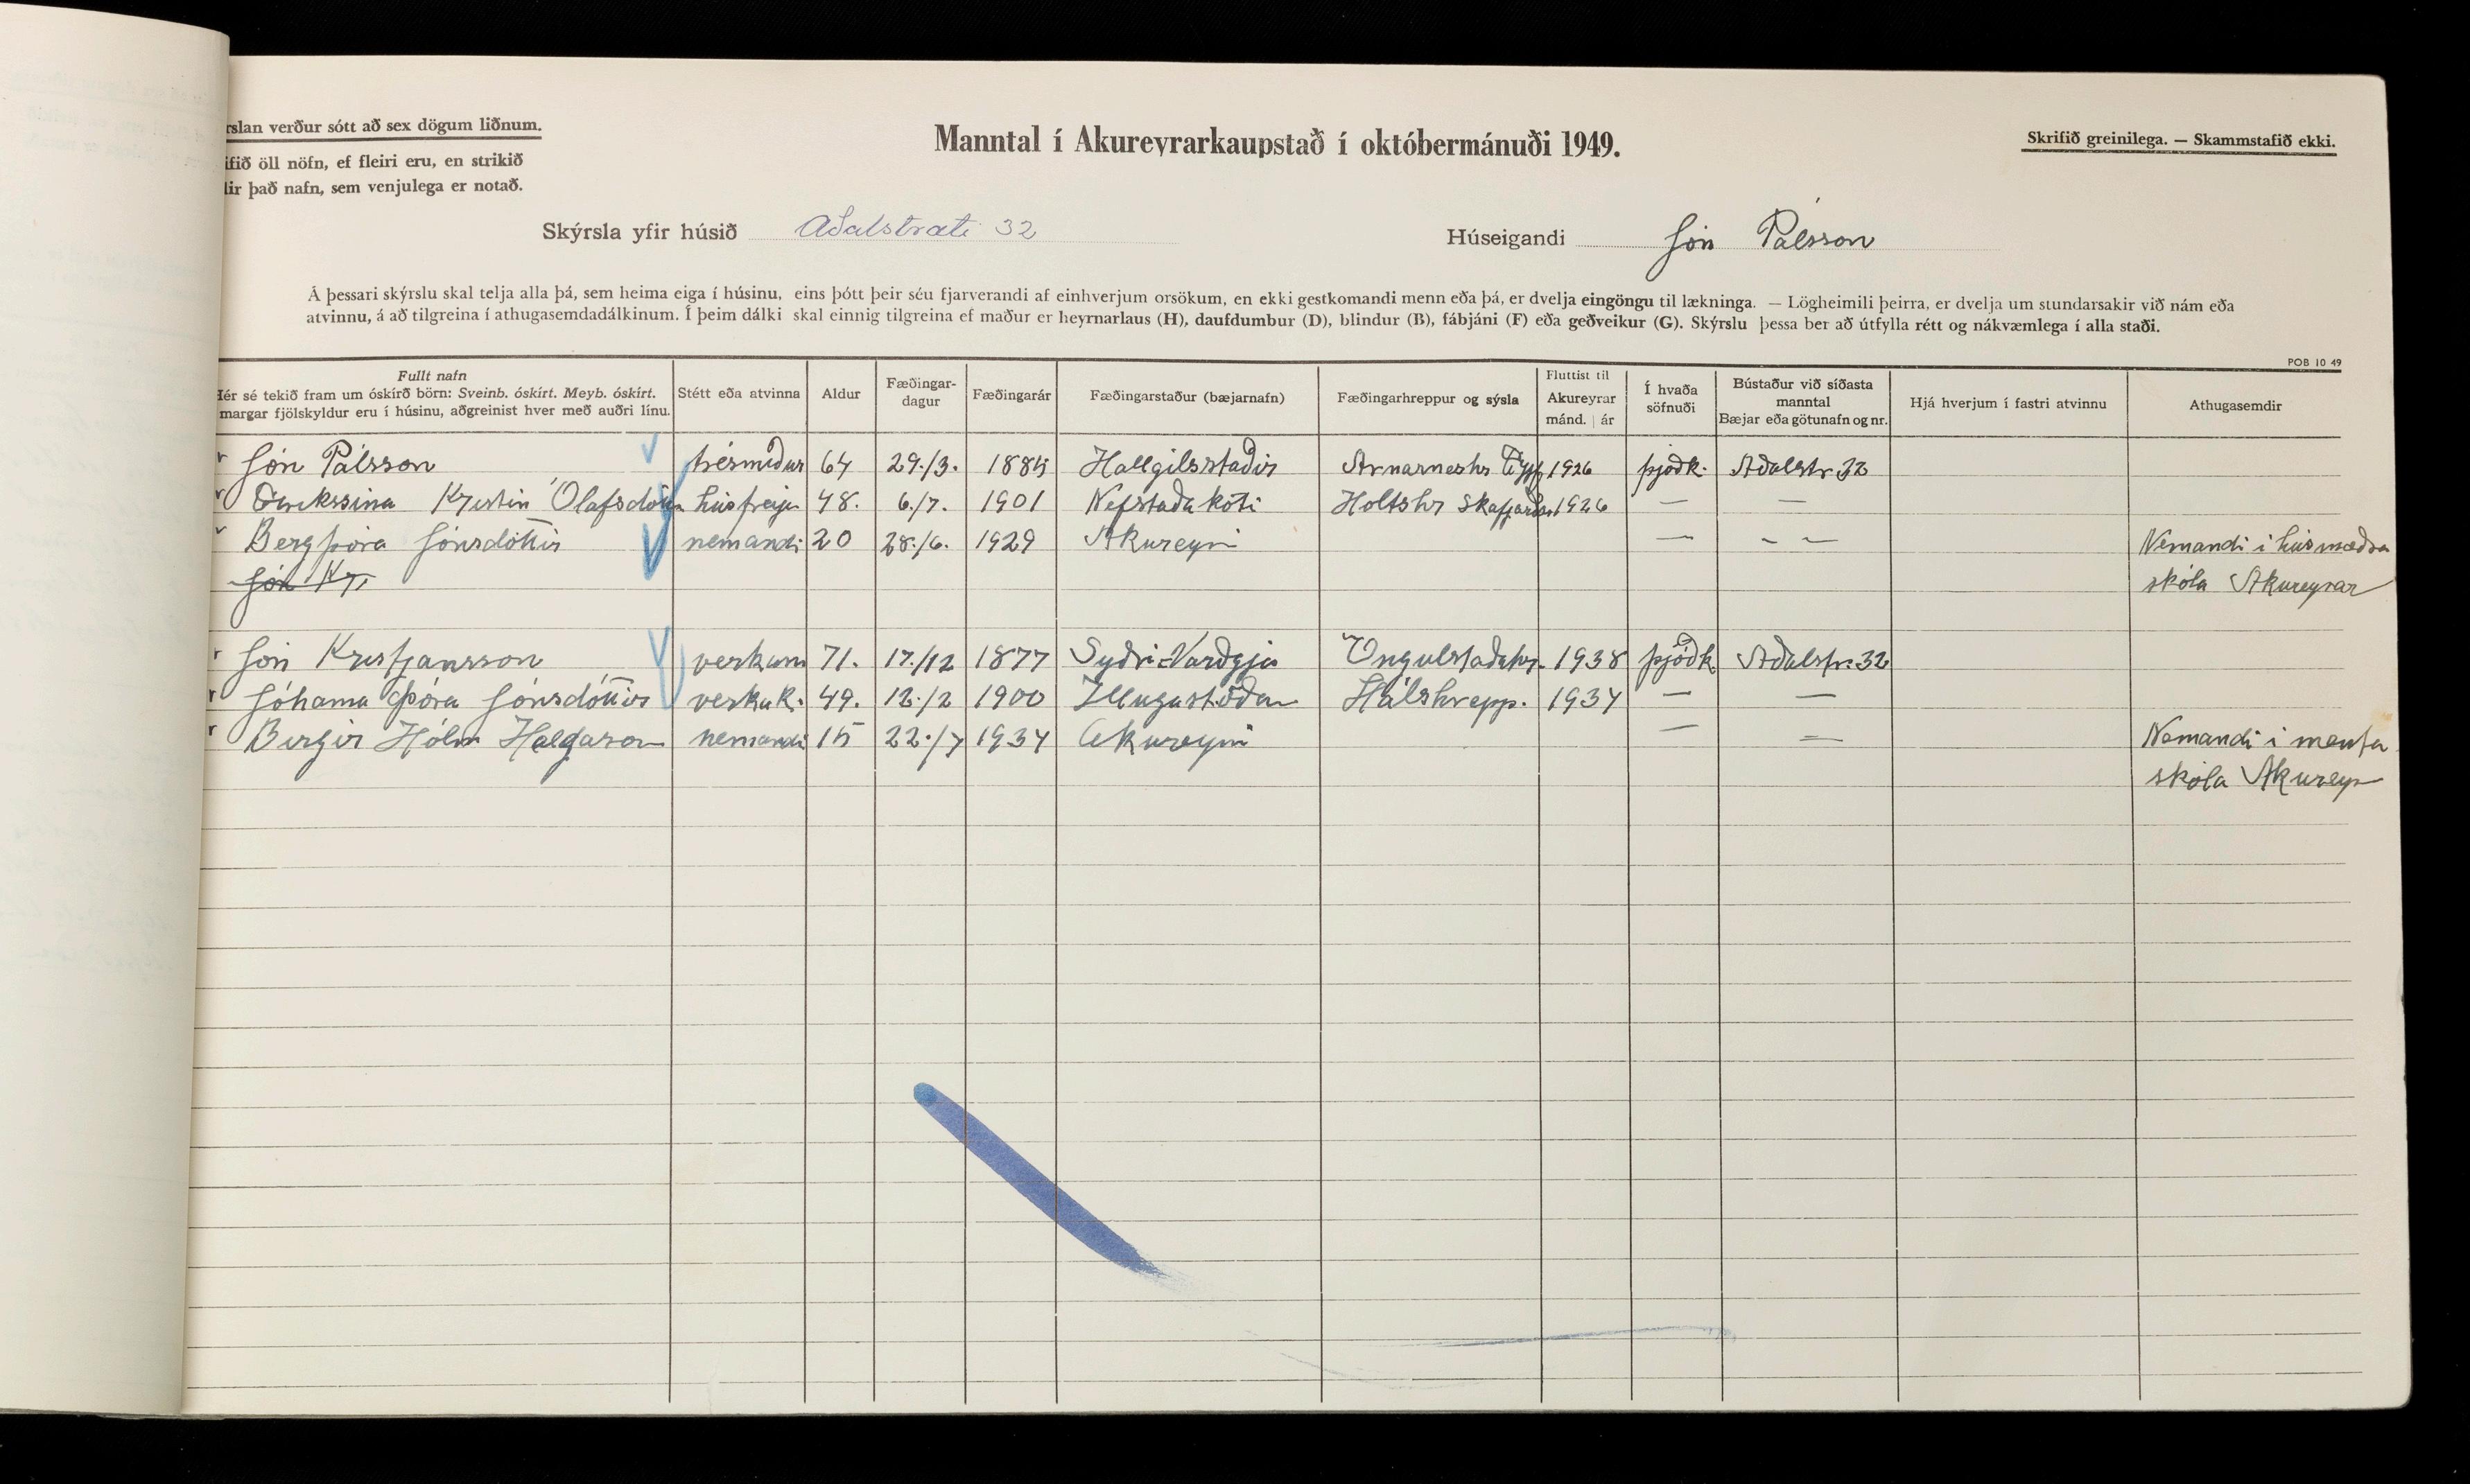 rslan verður sótt að sex dögum liðnum.
ifið öll nöfn, ef fleiri eru, en strikið
lir það nafn, sem venjulega er notað.
Manntal í Akureyrarkaupstað í októbermánuði 1949.
Skrifið greinilega. — Skammstafið ekki.
Skýrsla yfir húsið Aðalstræti 32
Húseigandi Jón Pálsson
Á þessari skýrslu skal telja alla þá, sem heima eiga í húsinu, eins þótt þeir séu fjarverandi af einhverjum orsökum, en ekki gestkomandi menn eða þá, er dvelja eingöngu til lækninga. — Lögheimili þeirra, er dvelja um stundarsakir við nám eða
atvinnu, á að tilgreina í athugasemdadálkinum. Í þeim dálki skal einnig tilgreina ef maður er heyrnarlaus (H), daufdumbur (D), blindur (B), fábjáni (F) eða geðveikur (G). Skýrslu þessa ber að útfylla rétt og nákvæmlega í alla staði.
POB 10 49
Fullt nafn
Hér sé tekið fram um óskírð börn: Sveinb. óskírt. Meyb. óskírt.
margar fjölskyldur eru í húsinu, aðgreinist hver með auðri línu.
Stétt eða atvinna
Aldur
Fæðingar-
dagur
Fæðingarár
Fæðingarstaður (bæjarnafn)
Fæðingarhreppur og sýsla
Fluttist til
Akureyrar
mánd. | ár
Í hvaða
söfnuði
Bústaður við síðasta
manntal
Bæjar eða götunafn og nr.
Hjá hverjum í fastri atvinnu
Athugasemdir
Jón Pálsson trésmiður 64 29./3. 1885 Hallgilsstaðir Arnarneshr 1926 þjóðk. Aðalstr 32
Kristín Ólafsdóttir húsfreyja 48. 6./7. 1901 Nefstaðakoti Holtshr Skafjarðars 1926 — —
Bergþóra Jónsdóttir nemandi 20 28./6. 1929 Akureyri — – – Nemandi í húsmæðra
Jón Kr skóla Akureyrar
Jón Kristjánsson verkam 71. 17./12 1877 Syðri-Varðgjá Öngulstaðahr. 1938 þjóðk Aðalstr. 32
Jóhanna Þóra Jónsdóttir verkak. 49. 12./2 1900 Illugastöðum Hálshrepp. 1934 — —
Birgir Hólm Helgason nemandi 15 22./7 1934 Akureyri — — Nemandi í menta
skóla Akureyr